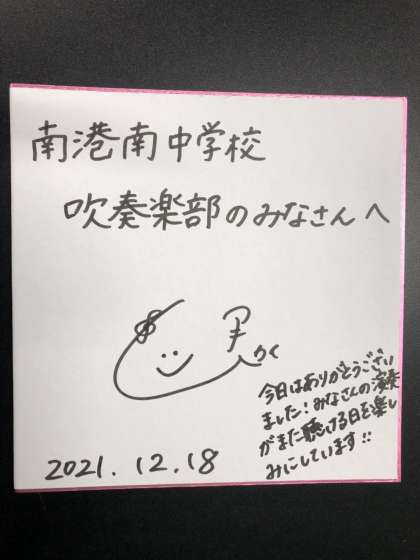 南港南中学校
吹奏楽部のみなさんへ
今日はありがとうござい
ました!みなさんの演奏
がまた聴ける日を楽し
みにしています!!
2021.12.18